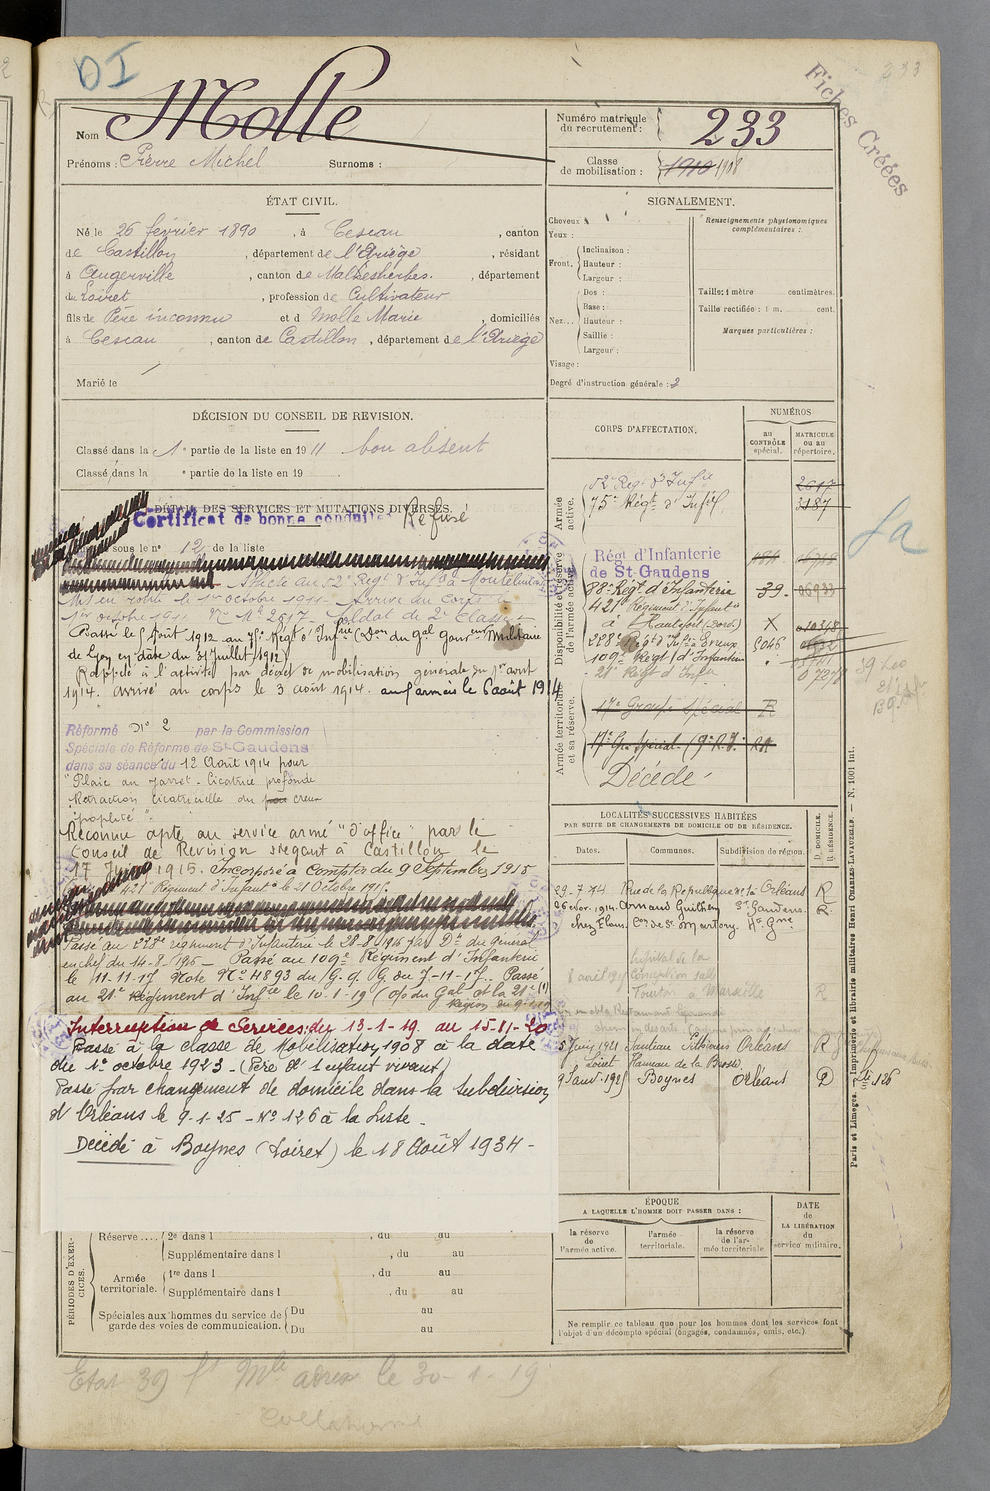 DI
233
Fiches Créées
Nom : Molle
Prénoms : Pierre Michel Surnoms :
Numéro matricule du recrutement : 233
Classe de mobilisation : 1910 1908
ÉTAT CIVIL.
Né le 26 février 1890, à Cescau, canton
de Castillon, département de l'Ariège, résidant
à Augerville, canton de Malesherbes, département
du Loiret, profession de Cultivateur
fils de Père inconnu et d Molle Marie, domiciliés
à Cescau, canton de Castillon, département de l'Ariège
Marié le
SIGNALEMENT.
Cheveux
Yeux :
Front. Inclinaison :
Hauteur :
Largeur :
Nez... Dos :
Base :
Hauteur :
Saillie :
Largeur :
Visage :
Renseignements physionomiques complémentaires :
Taille : 1 mètre centimètres.
Taille rectifiée : 1 m. cent.
Marques particulières :
Degré d'instruction générale : 2
DÉCISION DU CONSEIL DE REVISION.
Classé dans la 1e partie de la liste en 1911 bon absent
Classé dans la e partie de la liste en 19
DÉTAIL DES SERVICES ET MUTATIONS DIVERSES.
Certificat de bonne conduite Refusé
sous le n° 12 de la liste
au 52e Regt d'Infie à Montélimar
Mis en route le 1er octobre 1911. Arrivé au Corps le
1er octobre 1911. No Mle 2617. Soldat de 2e Classe
Passé le 1 Août 1912 au 75e Régt d'Infrie (Don du Gal Gouvr Militaire
de Lyon en date du 31 Juillet 1912)
Rappelé à l'activité par décret de mobilisation générale du 1er août
1914. arrivé au corps le 3 août 1914. aux armées le 6 août 1914
Réformé N° 2 par la Commission
Spéciale de Réforme de St-Gaudens
dans sa séance du 12 Août 1914 pour
"Plaie au jarret. Cicatrice profonde
Rétraction cicatricielle du creux
poplité".
Reconnu apte au service armé "d'office" par le
Conseil de Revision siégeant à Castillon le
17 Juin 1915. Incorporé à compter du 9 Septembre 1915
421e Régiment d'Infantie le 21 Octobre 1915.
Passé au régiment d'Infanterie le 28-8-1916 par Dn du général
en chef du 14-8-1916 - Passé au 109e Régiment d'Infanterie
le 11-11-17 Note No 4893 du G.Q.G du 7-11-17. Passé
au 21e Régiment d'Infie le 10-1-19 (o/o du Gal Ct la 21e (1)
Région du 9-1-19
Interruption de Services : du 13-1-19. au 15-11-20
Passé à la classe de Mobilisation 1908 à la date
du 1er octobre 1923 - (Père d'1 enfant vivant)
Passé par changement de domicile dans la subdivision
d'Orléans le 9-1-25 - No 126 à la Liste -
Décédé à Boynes (Loiret) le 18 Août 1934 -
CORPS D'AFFECTATION.
NUMÉROS
au CONTRÔLE spécial.
MATRICULE ou au répertoire.
Armée active.
52e Regt d'Infie 2617
75e Régt d'Infie 3187
Disponibilité et réserve de l'armée active.
Régt d'Infanterie
de St-Gaudens
88e Regt. d'Infanterie 39 06933
421e Régiment d'Infantie
à Hautefort (Dord.) X
228e Regt Infie Evreux 5046
109e Régt d'Infanterie
21e Régt d'Infie 07278
Armée territoriale et sa réserve.
17e Groupe Spécial R
17e Gpe Spécial (9e R.I.
Décédé
LOCALITÉS SUCCESSIVES HABITÉES
PAR SUITE DE CHANGEMENTS DE DOMICILE OU DE RÉSIDENCE.
Dates. Communes. Subdivision de région. D. DOMICILE. R. RÉSIDENCE.
29-7-14 Rue de la République Orléans R
26 nov. 1914. Arnaud Guilhem St Gaudens. R.
chez Elam. Con de St Martory. Hte Gne
hôpital de la
8 août 1917 Conception salle
à Marseille R
5 Juin 1921 Pithiviers Orléans R
Loiret Hameau de la Brosse
9 Janv. 1925 Boynes Orléans D
126
ÉPOQUE
A LAQUELLE L'HOMME DOIT PASSER DANS :
la réserve de l'armée active.
l'armée territoriale.
la réserve de l'armée territoriale.
DATE de LA LIBÉRATION du service militaire.
Ne remplir ce tableau que pour les hommes dont les services font
l'objet d'un décompte spécial (engagés, condamnés, omis, etc.)
PÉRIODES D'EXERCICES.
Réserve.... 2e dans l , du au
Supplémentaire dans l , du au
Armée territoriale. 1re dans l , du au
Supplémentaire dans l , du au
Spéciales aux hommes du service de garde des voies de communication. Du au
Du au
Paris et Limoges. — Imprimerie et librairie militaires Henri CHARLES-LAVAUZELLE. — N. 1001 Int.
Etat 39 Mle adressé le 30-1-19